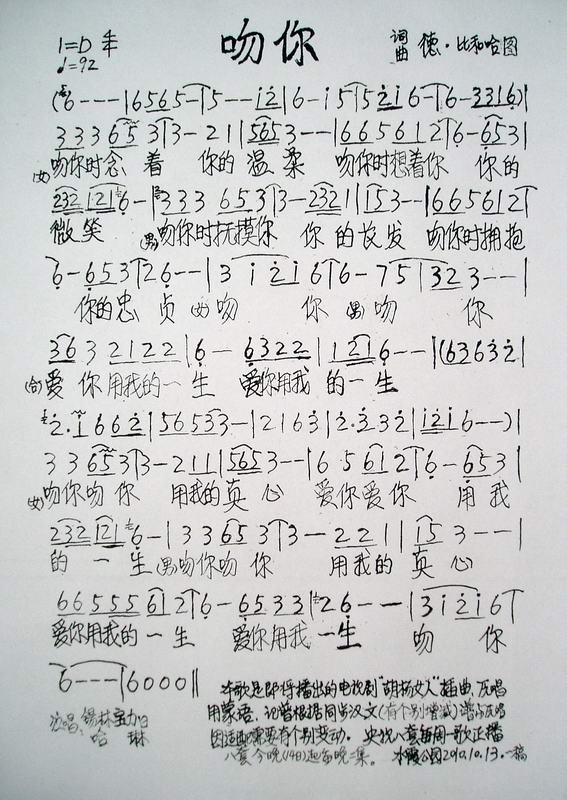 吻你
1=D 4/4
♩=92
词曲 德·比和哈图
(6 - - - | 6 5 6 5 - | 5 - - i 2 | 6 - i 5 | 5 2 i 6 - | 6 - 3 3 1 6) |
3 3 3 6 5 3 | 3 - 2 1 | 5 6 5 3 - - | 6 6 5 6 1 2 | 6 - 6 5 3 |
(女)吻你时念 着 你的 温 柔 吻你时想着你 你的
2 3 2 1 2 1 6 - | 3 3 3 6 5 3 | 3 - 2 3 2 1 | 1 5 3 - - | 6 6 5 6 1 2 |
微笑 (男)吻你时抚摸你 你 的 长 发 吻你时拥抱
6 - 6 5 3 | 2 6 - - | 3 i 2 i 6 | 6 - 7 5 | 3 2 3 - - |
你的忠 贞 (女)吻 你 (男)吻 你
3 6 3 2 1 2 2 | 6 - 6 3 2 2 | 1 2 1 6 - - | (6 3 6 3 2 |
(合)爱 你 用我的一 生 爱你用我 的一生
2 · i 6 6 2 | 5 6 5 3 3 - | 2 1 6 3 | 2 · 3 3 2 | i 2 i 6 - -) |
3 3 6 5 3 | 3 - 2 1 1 | 5 6 5 3 - - | 6 5 6 1 2 | 6 - 6 5 3 |
(女)吻你吻 你 用我的真 心 爱你爱你 用 我
2 3 2 1 2 1 6 - | 3 3 6 5 3 | 3 - 2 2 1 | 1 5 3 - - |
的 一 生 (男)吻你吻 你 用我的 真 心
6 6 5 5 5 6 1 2 | 6 - 6 5 3 3 | 2 6 - - | 3 i 2 i 6 |
爱你用我的一 生 爱你用我 一生 吻 你
6 - - - | 6 0 0 0 ||
本歌是即将播出的电视剧"胡杨女人"插曲,原唱
用蒙语,记谱根据同步汉文(有个别增减)谱与原唱
因适配需要有个别变动。央视八套每周一歌正播
八套今晚(14日)起每晚二集。 水霞公园2010.10.13.一稿
演唱:锡林宝力日
哈 琳